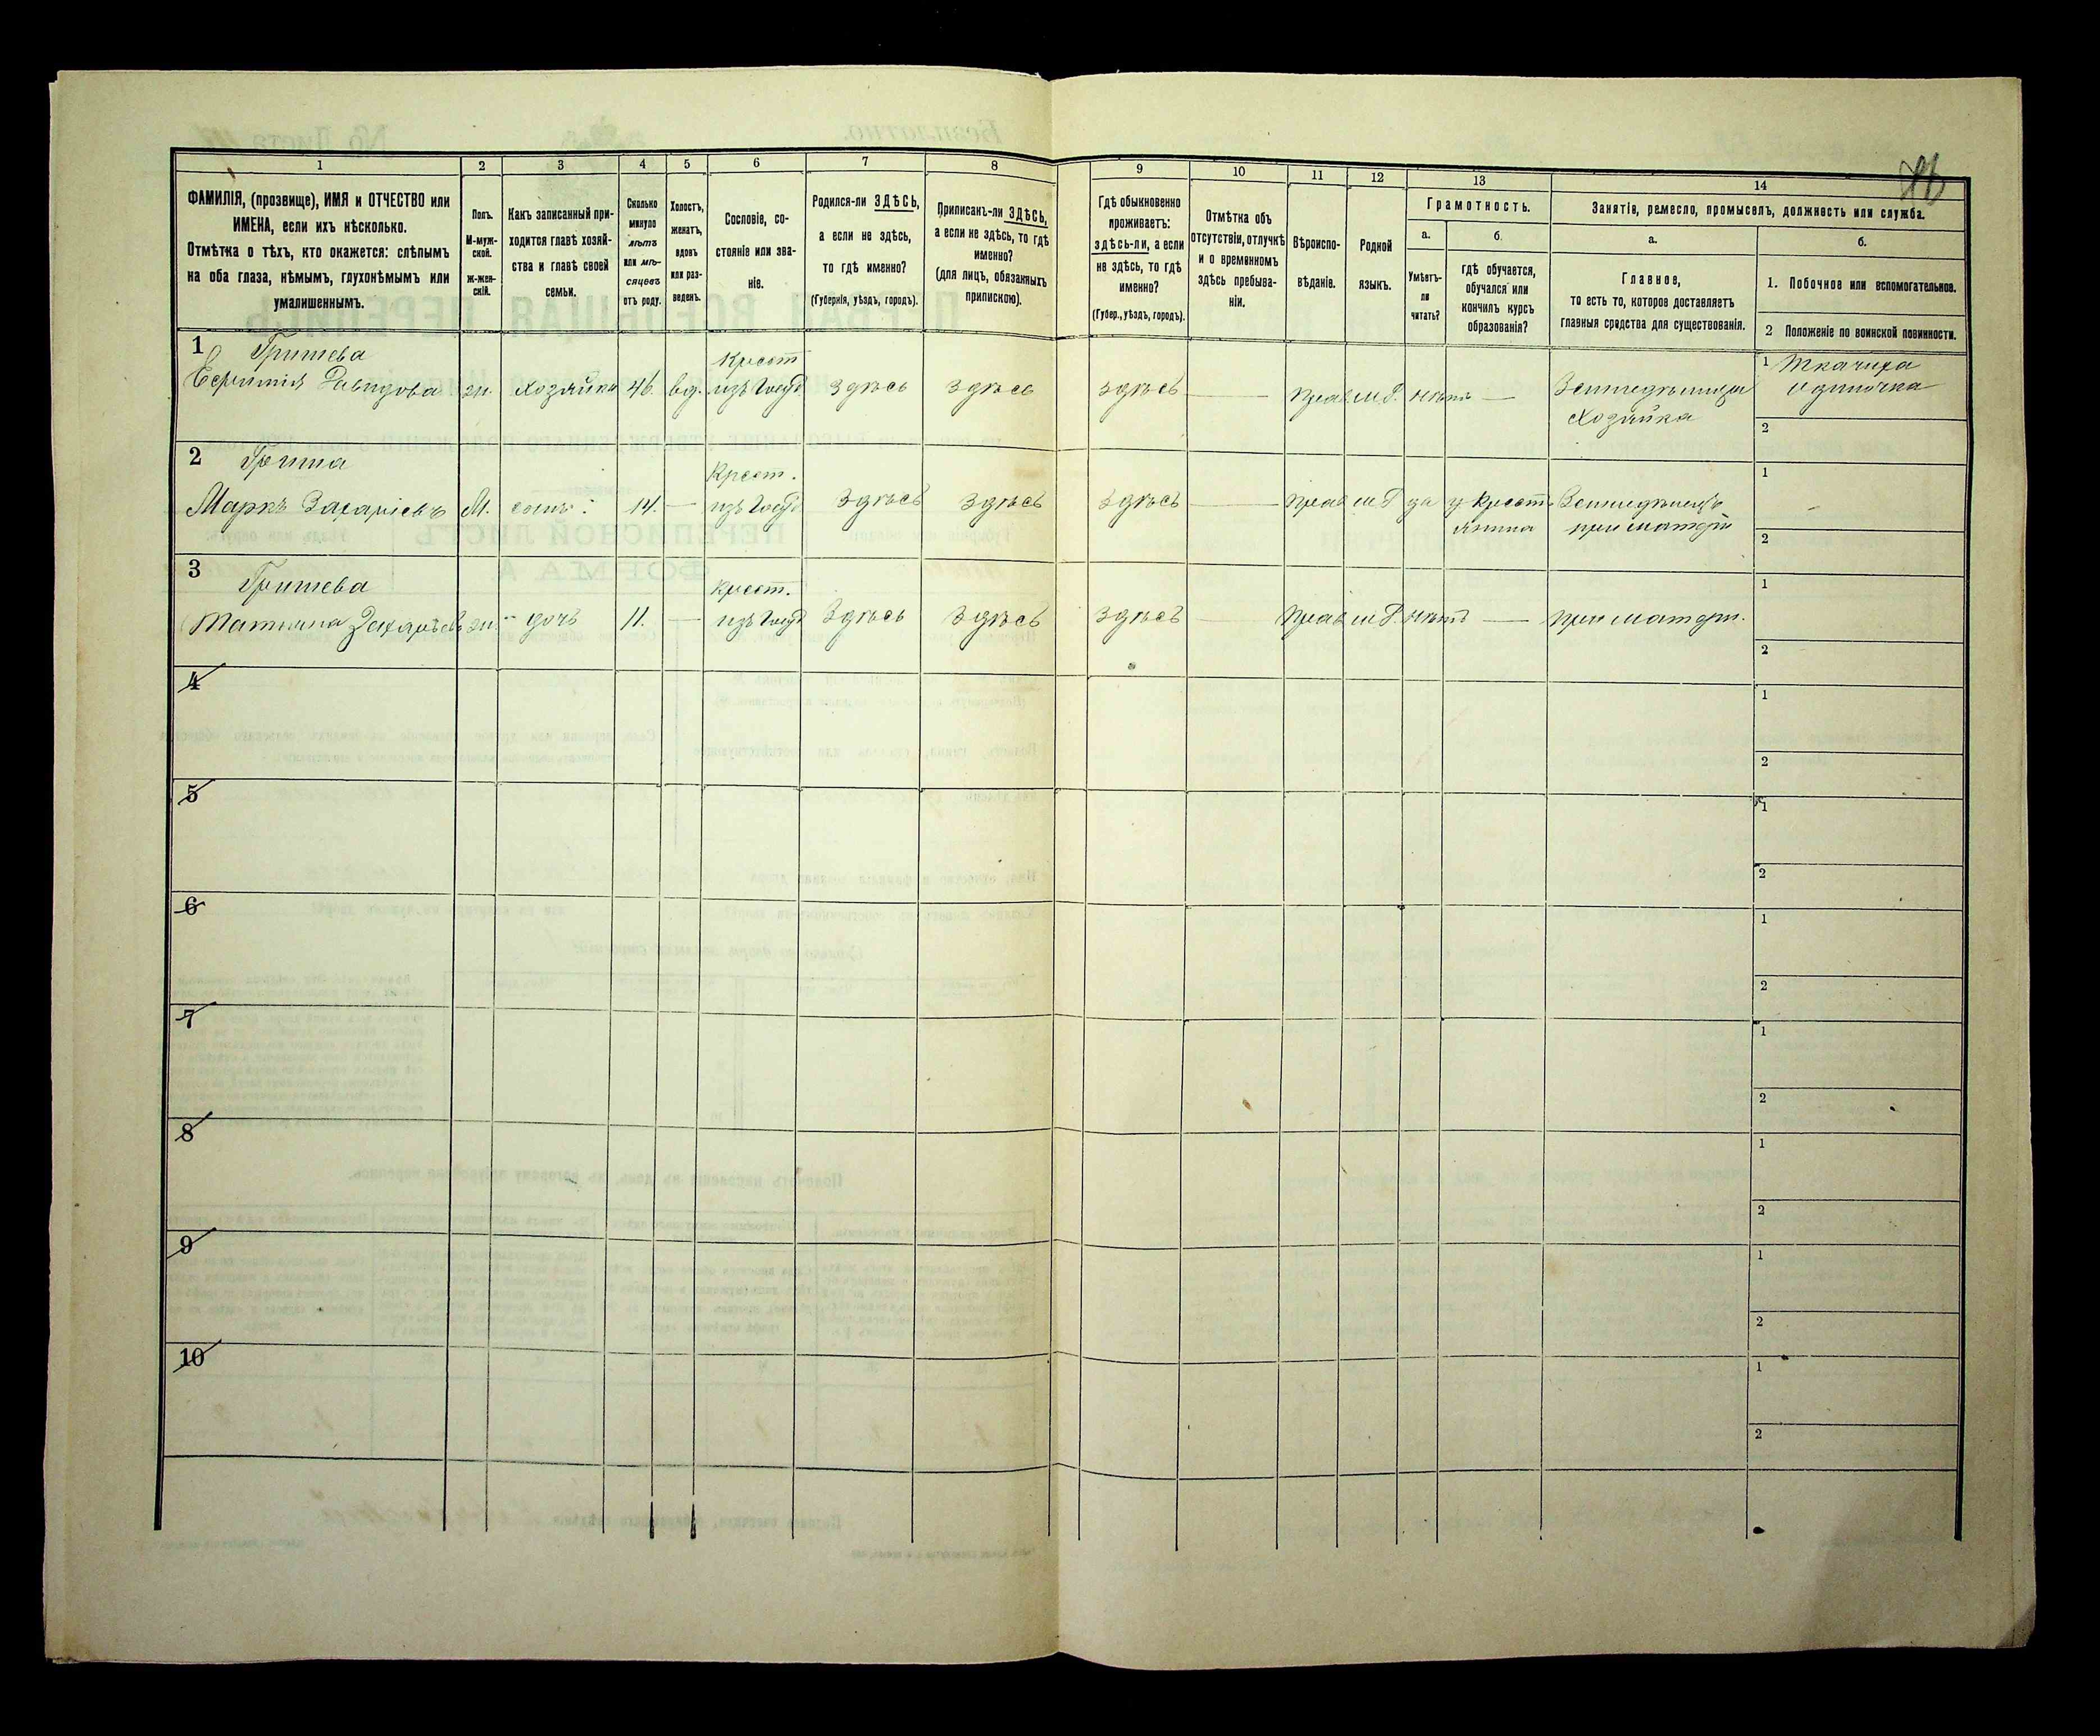 1 2 3 4 5 6 7 8 9 10 11 12 13 14
ФАМИЛІЯ, (прозвище), ИМЯ и ОТЧЕСТВО или
ИМЕНА, если ихъ нѣсколько.
Отмѣтка о тѣхъ, кто окажется: слѣпымъ
на оба глаза, нѣмымъ, глухонѣмымъ или
умалишеннымъ.
Полъ.
М-муж-
ской.
ж-жен-
скій.
Какъ записанный при-
ходится главѣ хозяй-
ства и главѣ своей
семьи.
Сколько
минуло
лѣтъ
или мѣ-
сяцевъ
отъ роду.
Холостъ,
женатъ,
вдовъ
или раз-
веденъ.
Сословіе, со-
стояніе или зва-
ніе.
Родился-ли ЗДѢСЬ,
а если не здѣсь,
то гдѣ именно?
(Губернія, уѣздъ, городъ).
Приписанъ-ли ЗДѢСЬ,
а если не здѣсь, то гдѣ
именно?
(для лицъ, обязанныхъ
припискою).
Гдѣ обыкновенно
проживаетъ:
здѣсь-ли, а если
не здѣсь, то гдѣ
именно?
(Губер., уѣздъ, городъ).
Отмѣтка объ
отсутствіи, отлучкѣ
и о временномъ
здѣсь пребыва-
ніи.
Вѣроиспо-
вѣданіе.
Родной
языкъ.
Грамотность.
а.
Умѣетъ-
ли
читать?
б.
Гдѣ обучается,
обучался или
кончилъ курсъ
образованія?
Занятіе, ремесло, промыселъ, должность или служба.
а.
Главное,
то есть то, которое доставляетъ
главныя средства для существованія.
б.
1. Побочное или вспомогательное.
2 Положеніе по воинской повинности.
1 Гришева Крест 1 Ткачиха
Евфимія Давидова ж. хозяйка 46. вд. изъ Госуд здѣсь здѣсь здѣсь — Прав м.Р. нѣтъ — Земледѣлица Одиночка
Хозяйка
2
2 Гришa Крест. 1
Маркъ Захаріевъ М. сынъ 14. — изъ Госуд здѣсь здѣсь здѣсь — Прав м.Р да у крест- Земледѣлецъ
янина при матери
2
3 Гришева крест. 1
Татіяна Захаріев ж. дочь 11. — изъ Госуд здѣсь здѣсь здѣсь — Прав м.Р. нѣтъ — при матери.
2
4 1
2
5 1
2
6 1
2
7 1
2
8 1
2
9 1
2
10 1
2